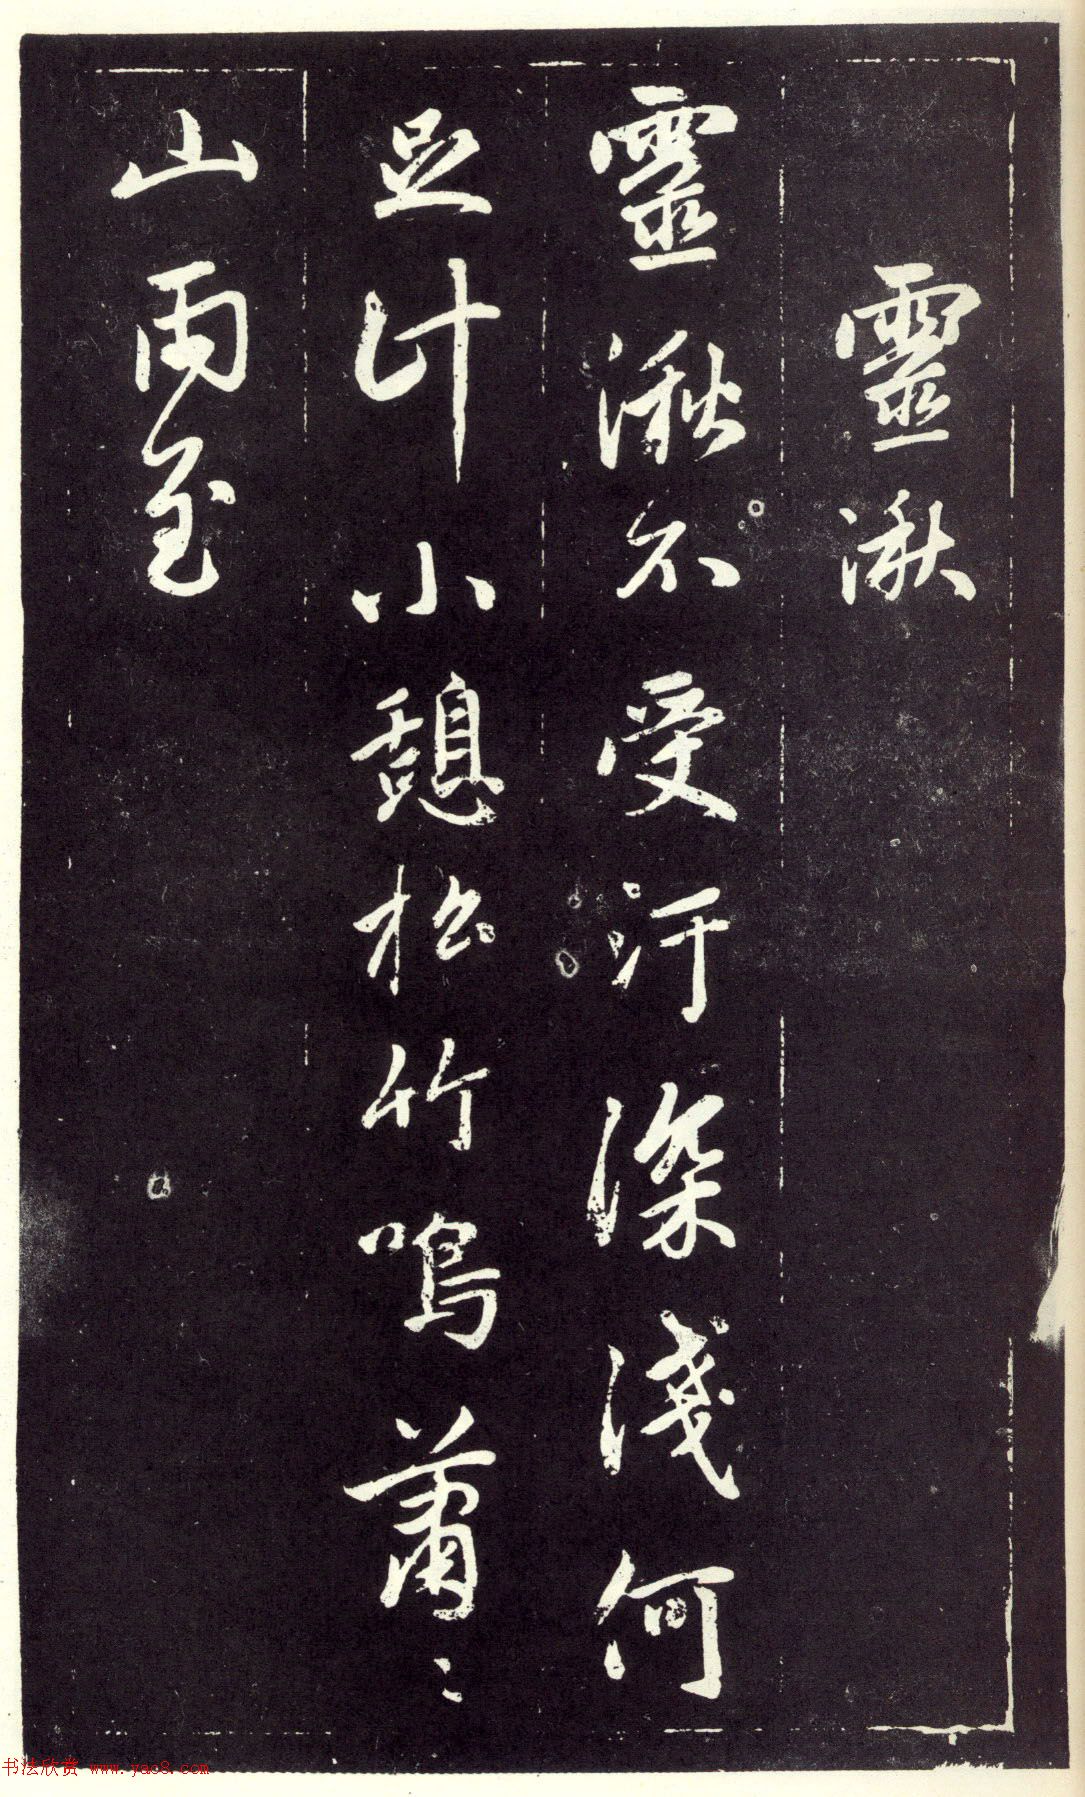 靈湫
靈湫不受汙深淺何
足計小憩松竹鳴蕭〻
山雨至
书法欣赏 www.yac8.com